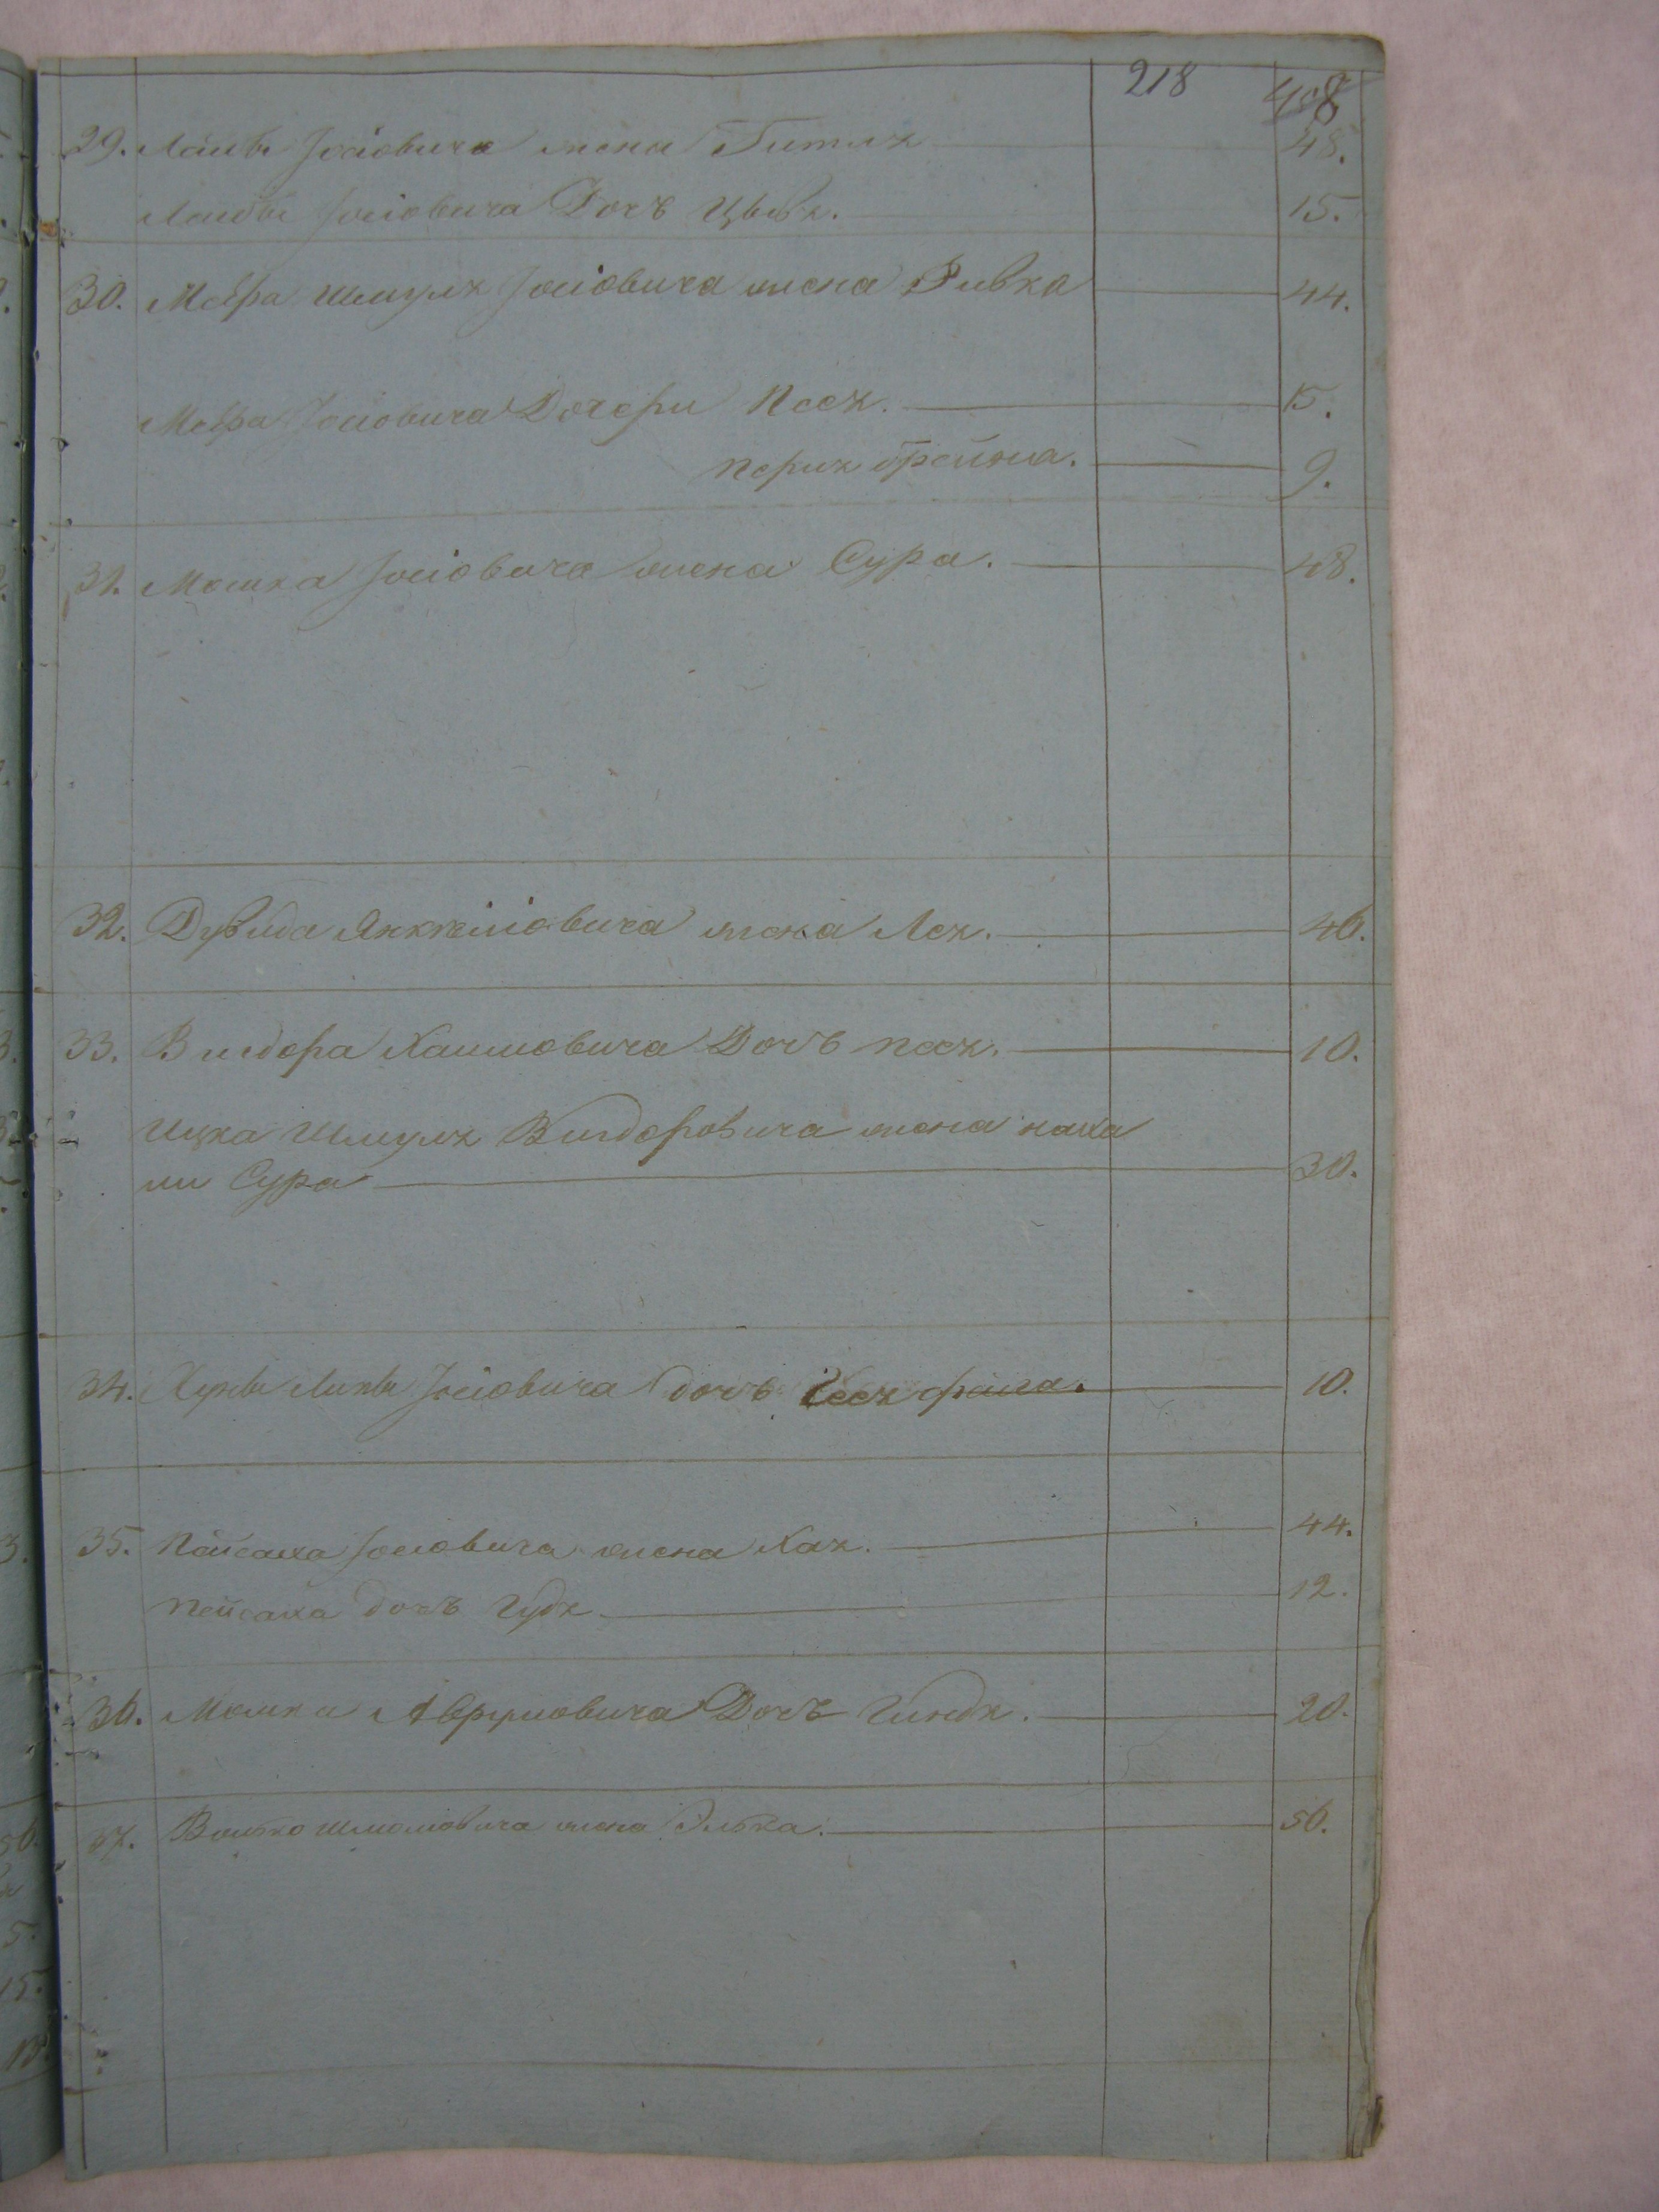 218 408
29. Лейбы Іосіовича жена Гитля 48.
Лейбы Іосіовича Дочь Цывя. 15.
30. Меера Шмуля Іосіовича жена Ривка 44.
Меера Іосіовича Дочери Песя. 15.
Перля брейна. 9.
31. Мошка Іосіовича жена Сура. 48.
32. Дувида Янкеліовича жена Лея. 46.
33. Вигдора Хаимовича Дочь песя. 10.
Ицка Шмуля Вигдоровича жена наха
ми Сура 30.
34. Іосіовича дочь фейга. 10.
35. Пейсаха Іосіовича жена Хая. 44.
Пейсаха дочь Гудя 12.
36. Мошки Аврумовича Дочь Гиндя. 20.
37. Волько Шмоиловича жена Элька. 56.